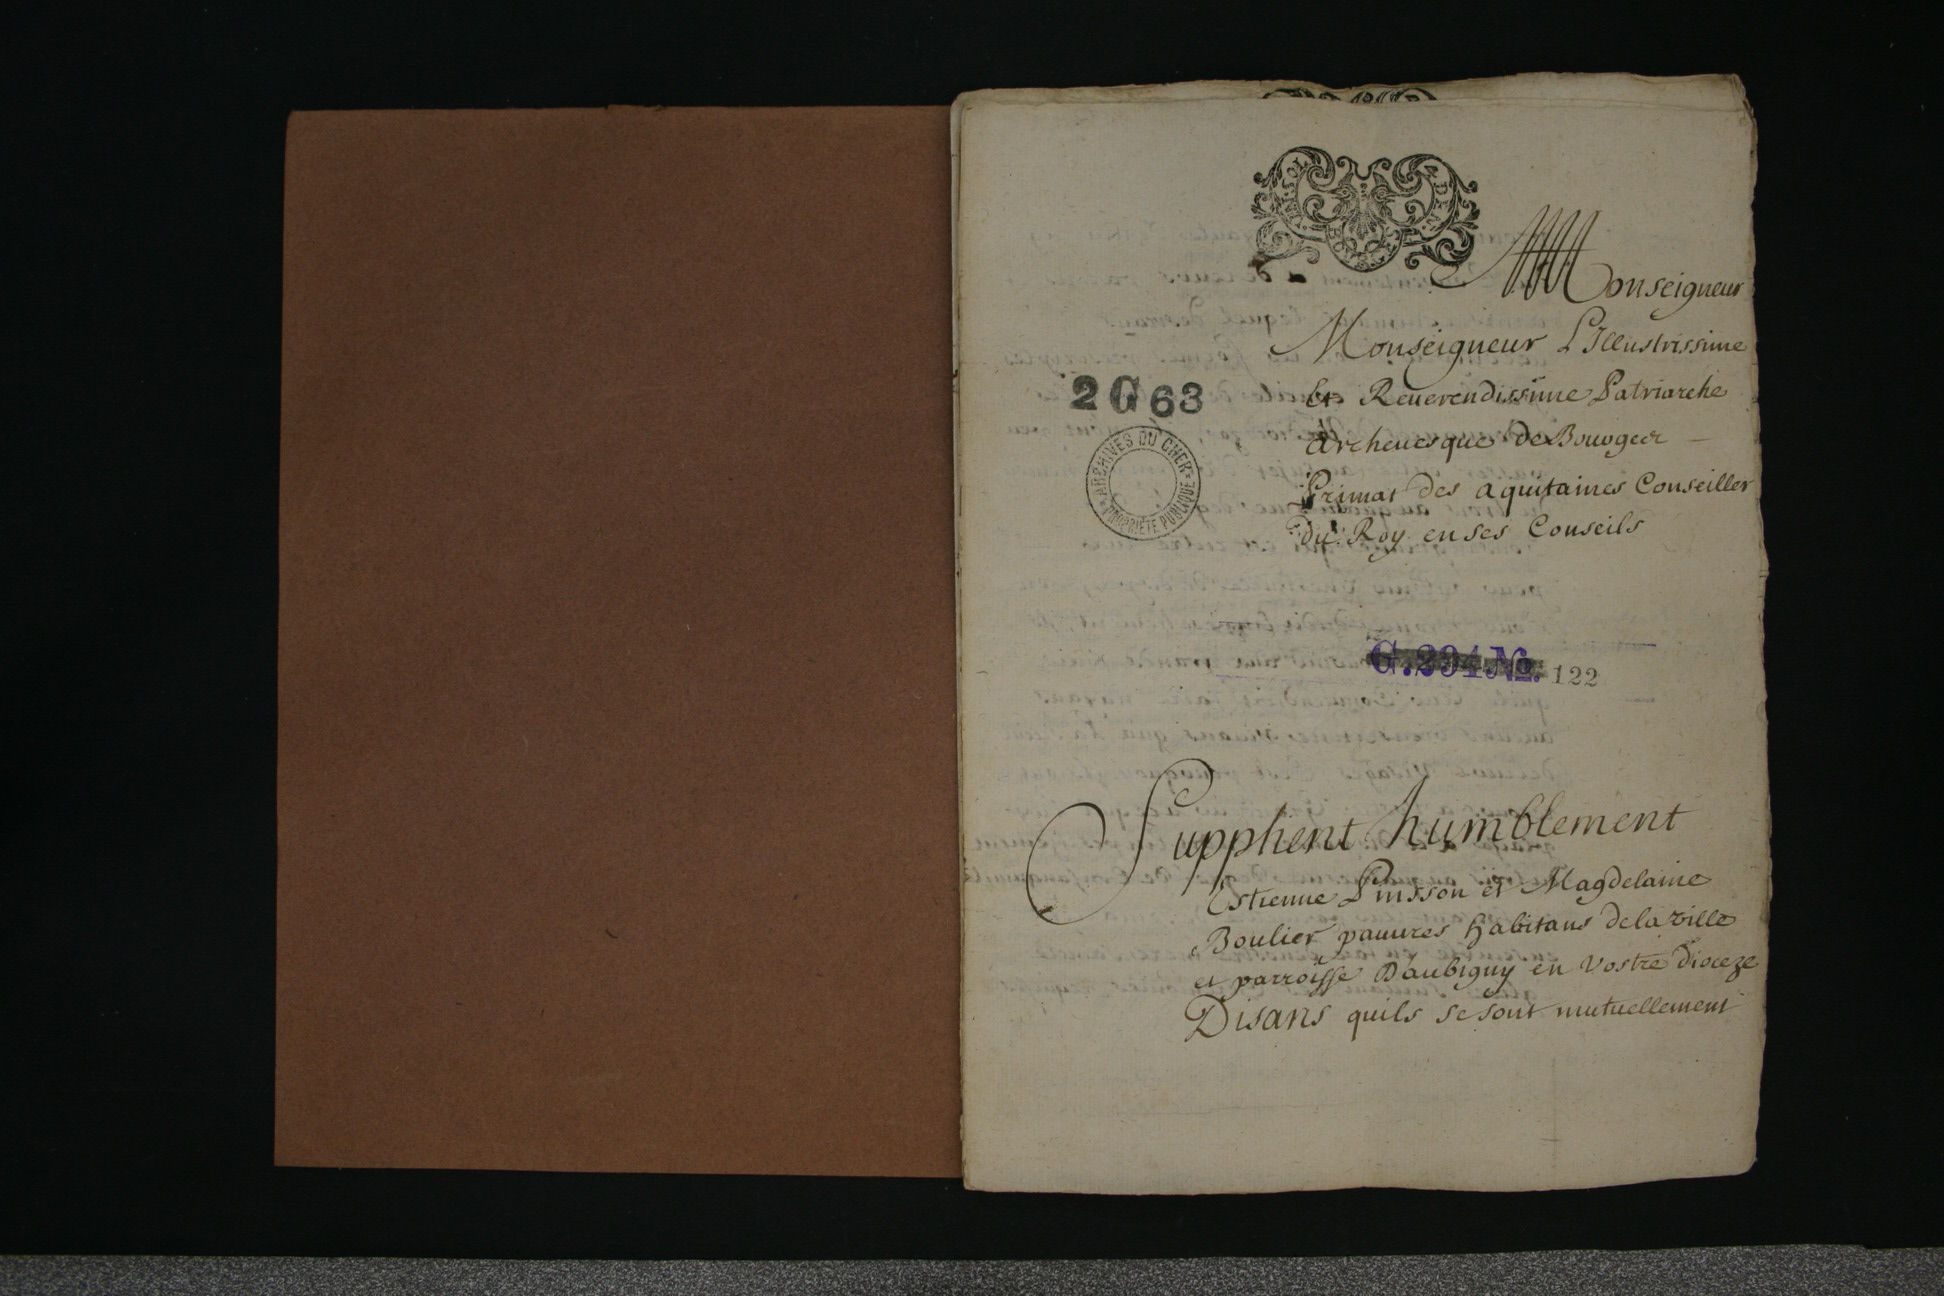 Monseigneur
Monseigneur L'Illustrissime
Et Reuerendissime Patriarche
Archeuesque de Bourges
Primat des aquitaines Conseiller
du Roy en ses Conseils
2 G 63
ARCHIVES DU CHER
PROPRIÉTÉ PUBLIQUE
G.294 No. 122
Supplient humblement
Estienne Pinsson et Magdelaine
Boulier pauures habitans de la ville
et parroisse D'aubigny en vostre dioceze
Disans quils se sont mutuellement